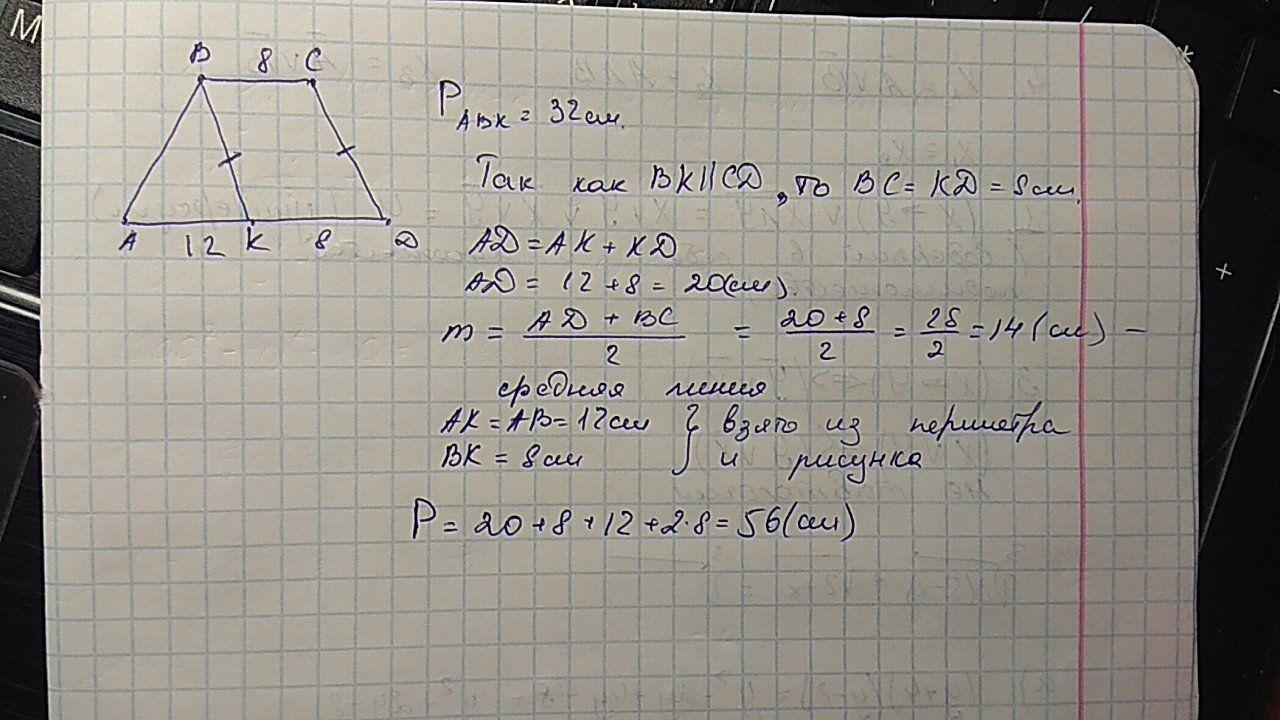 B 8 C
A 12 K 8 D
P_ABK = 32 см.
Так как BK||CD, то BC = KD = 8 см.
AD = AK + KD
AD = 12 + 8 = 20(см).
m = (AD + BC)/2 = (20 + 8)/2 = 28/2 = 14 (см) –
средняя линия.
AK = AB = 12 см } взято из периметра
BK = 8 см } и рисунка
P = 20 + 8 + 12 + 2·8 = 56(см)